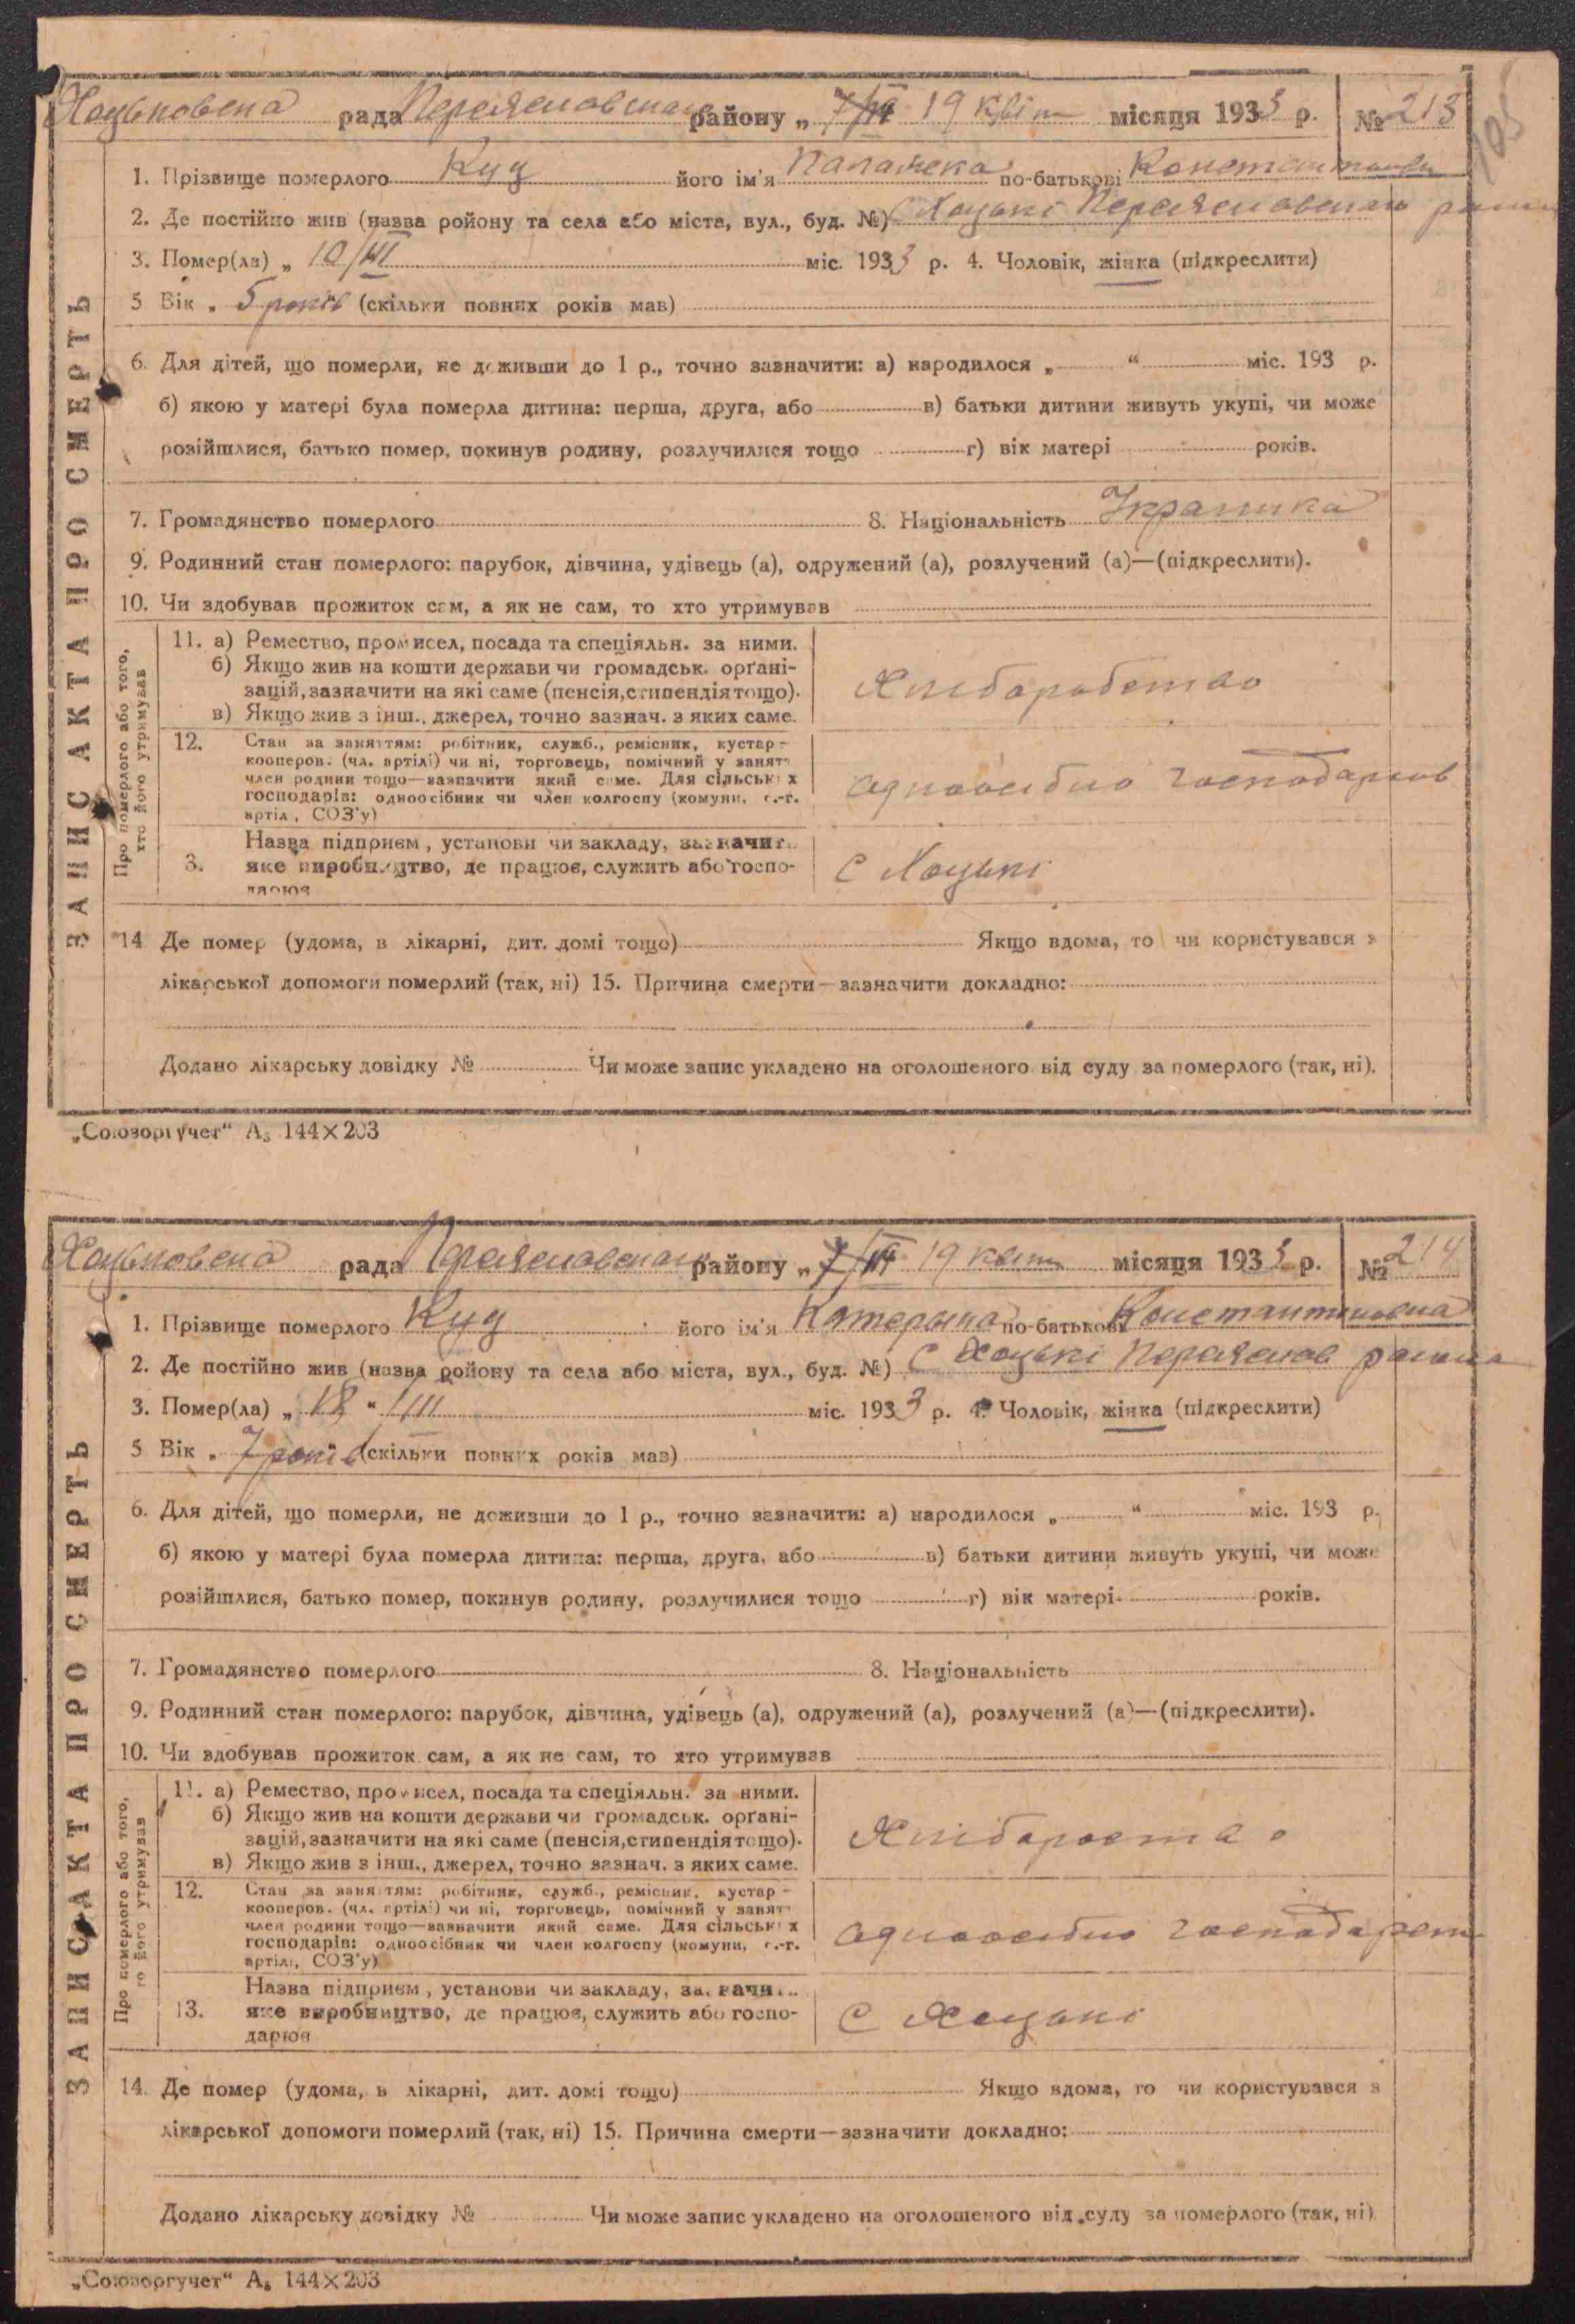 Хоцьковска рада Переяславськ району „ 7/IV 19 квіт місяця 1933 р. № 213
195
1. Прізвище померлого Куц його ім'я Палажка по-батькові Константиновн
2. Де постійно жив (назва ройону та села або міста, вул., буд. №) с Хоцькі Переяславського району
3. Помер(ла) „ 10/III міс. 1933 р. 4. Чоловік, жінка (підкреслити)
5 Вік „ 5 років (скільки повних років мав)
6. Для дітей, що померли, не доживши до 1 р., точно зазначити: а) народилося „ “ міс. 193 р.
б) якою у матері була померла дитина: перша, друга, або в) батьки дитини живуть укупі, чи може
розійшлися, батько помер, покинув родину, розлучилися тощо г) вік матері років.
7. Громадянство померлого 8. Національність Украинка
9. Родинний стан померлого: парубок, дівчина, удівець (а), одружений (а), розлучений (а)—(підкреслити).
10. Чи здобував прожиток сам, а як не сам, то хто утримував
ЗАПИС АКТА ПРО СМЕРТЬ
Про померлого або того,
хто його утримував
11. а) Ремество, промисел, посада та спеціяльн. за ними.
б) Якщо жив на кошти держави чи громадськ. орґані-
зацій, зазначити на які саме (пенсія, стипендія тощо).
в) Якщо жив з інш., джерел, точно зазнач. з яких саме.
Хліборобство
12. Стан за заняттям: робітник, служб., ремісник, кустар -
кооперов. (чл. артілі) чи ні, торговець, помічний у занятт
член родини тощо—зазначити який саме. Для сільських
господарів: одноосібник чи член колгоспу (комуни, с.-г.
артіл, СОЗ'у)
одноосібно господарив
3. Назва підприєм, установи чи закладу, зазначит
яке виробництво, де працює, служить або госпо-
дарює
С Хоцькі
14 Де помер (удома, в лікарні, дит. домі тощо) Якщо вдома, то чи користувався з
лікарської допомоги померлий (так, ні) 15. Причина смерти—зазначити докладно:
Додано лікарську довідку № Чи може запис укладено на оголошеного від суду за померлого (так, ні).
„Союзоргучет“ А₅ 144×203
Хоцьковска рада Переяславськ району „ 7/IV 19 квіт місяця 1933 р. № 214
1. Прізвище померлого Куц його ім'я Катерына по-батькові Константиновна
2. Де постійно жив (назва ройону та села або міста, вул., буд. №) С Хоцькі Переяслов района
3. Помер(ла) „ 18 “ III міс. 1933 р. 4. Чоловік, жінка (підкреслити)
5 Вік „ 7 років (скільки повних років мав)
6. Для дітей, що померли, не доживши до 1 р., точно зазначити: а) народилося „ “ міс. 193 р.
б) якою у матері була померла дитина: перша, друга, або в) батьки дитини живуть укупі, чи може
розійшлися, батько помер, покинув родину, розлучилися тощо г) вік матері років.
7. Громадянство померлого 8. Національність
9. Родинний стан померлого: парубок, дівчина, удівець (а), одружений (а), розлучений (а)—(підкреслити).
10. Чи здобував прожиток сам, а як не сам, то хто утримував
ЗАПИС АКТА ПРО СМЕРТЬ
Про померлого або того,
го його утримував
11. а) Ремество, промисел, посада та спеціяльн. за ними.
б) Якщо жив на кошти держави чи громадськ. орґані-
зацій, зазначити на які саме (пенсія, стипендія тощо).
в) Якщо жив з інш., джерел, точно зазнач. з яких саме.
Хлібороство
12. Стан за заняттям: робітник, служб., ремісник, кустар -
кооперов. (чл. артілі) чи ні, торговець, помічний у занятт
член родини тощо—зазначити який саме. Для сільських
господарів: одноосібник чи член колгоспу (комуни, с.-г.
артілі, СОЗ'у)
одноосібно господарст
13. Назва підприєм, установи чи закладу, зазначи
яке виробництво, де працює, служить або госпо-
дарює
С Хоцькі
14. Де помер (удома, в лікарні, дит. домі тощо) Якщо вдома, то чи користувався з
лікарської допомоги померлий (так, ні) 15. Причина смерти—зазначити докладно:
Додано лікарську довідку № Чи може запис укладено на оголошеного від суду за померлого (так, ні).
„Союзоргучет“ А₅ 144×203